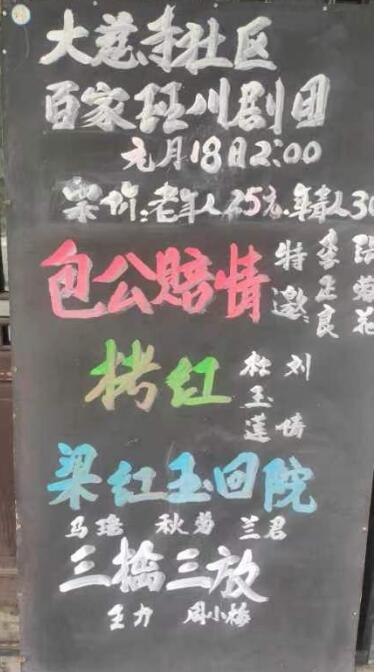 大慈寺社区
百家班川剧团
元月18日2:00
票价:老年人25元.年青人30
包公赔情
特邀:李正良 阳菊花
拷红
杜玉莲 刘倩
梁红玉回院
马瑞 秋菊 兰君
三擒三放
王力 周小梅